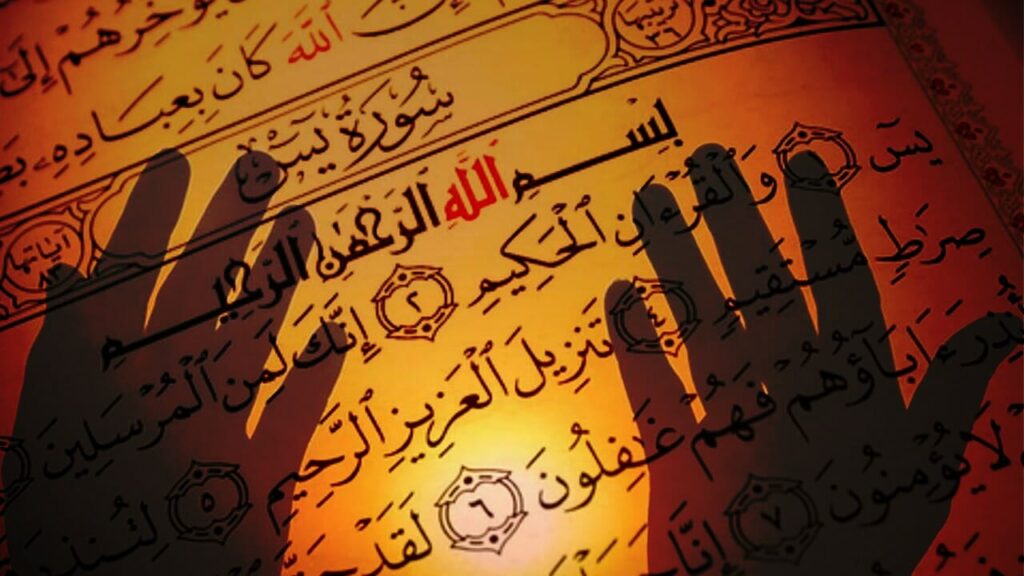 يُؤَخِّرُهُمْ إِلَىٰ
ٱللَّهَ كَانَ بِعِبَادِهِۦ
سُورَةُ يسٓ
٣٦
آياتها
٨٣
بِسْمِ اللَّهِ الرَّحْمَٰنِ الرَّحِيمِ
يسٓ ١ وَٱلْقُرْءَانِ ٱلْحَكِيمِ ٢ إِنَّكَ لَمِنَ ٱلْمُرْسَلِينَ
صِرَٰطٍ مُّسْتَقِيمٍ ٤ تَنزِيلَ ٱلْعَزِيزِ ٱلرَّحِيمِ ٥ لِتُنذِرَ
ءَابَآؤُهُمْ فَهُمْ غَٰفِلُونَ ٦ لَقَدْ
لَا يُؤْمِنُونَ ٧ إِنَّا